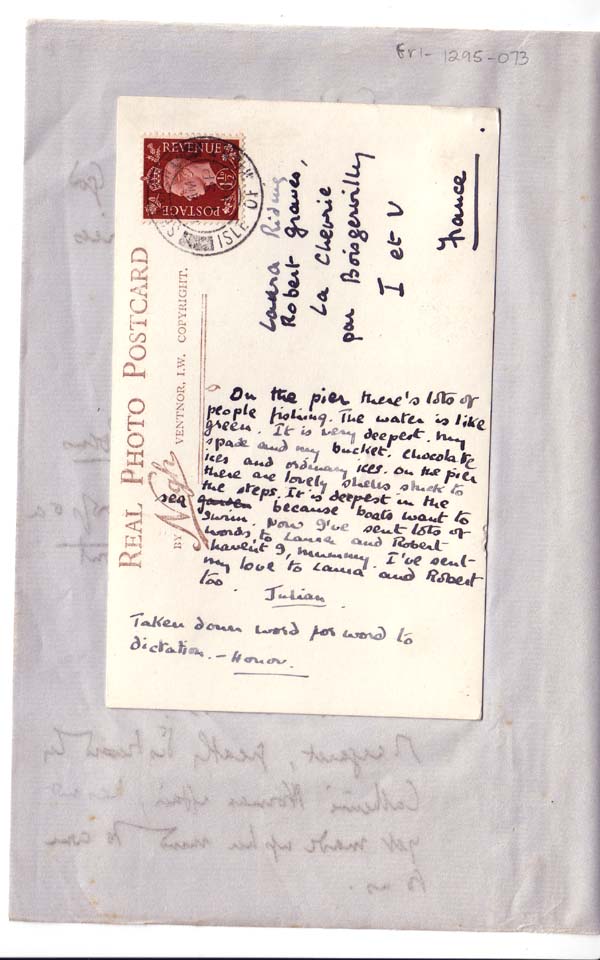 Eri- 1295-073
REVENUE
POSTAGE
ISLE OF
REAL PHOTO POSTCARD
BY Nigh VENTNOR, I.W. COPYRIGHT.
Laura Riding
Robert Graves,
La Chevrie
par Boisgervilly
I et V
France
On the pier there's lots of
people fishing. The water is like
green. It is very deepest. My
spade and my bucket. Chocolate
ices and ordinary ices. On the pier
there are lovely shells stuck to
the steps. It is deepest in the
sea garden because boats want to
swim. Now I've sent lots of
words, to Laura and Robert
havent I, mummy. I've sent
my love to Laura and Robert
too.
Julian
Taken down word for word to
dictation. - Honor.